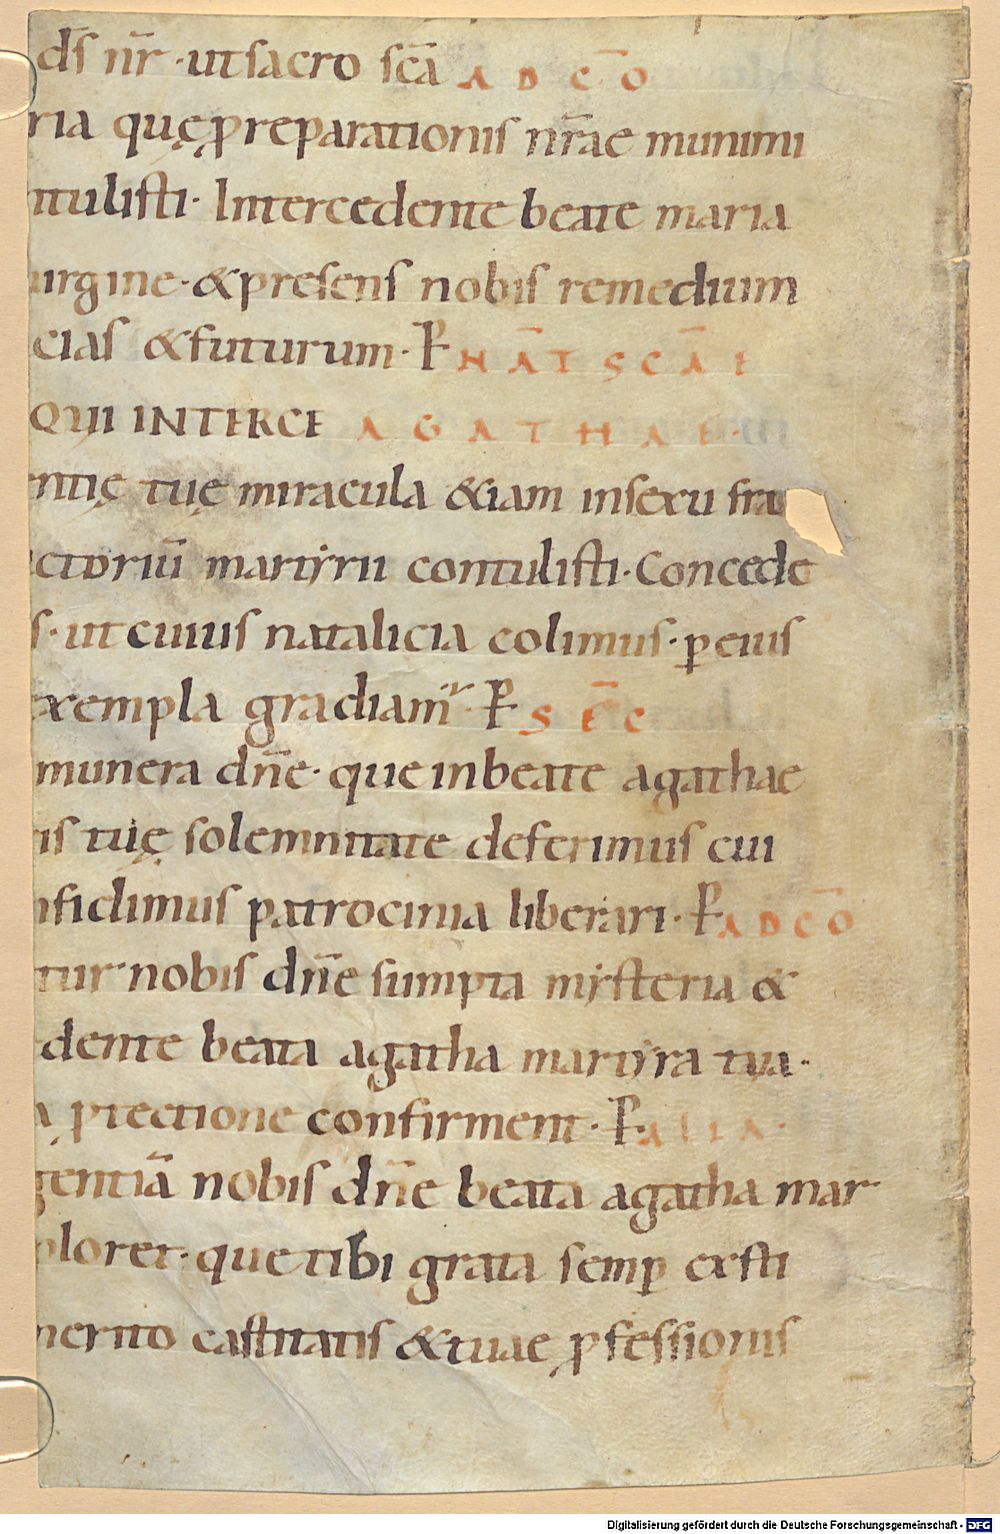 d̄s nr̄ · ut sacro sc̄a AD CŌ
ria quę ꝓ reparationis nr̄ae munimi
ntulisti · Intercedente beate maria
uirgine · & presens nobis remedium
cias & futurum · P NĀT SCĀE
QUI INTERCE AGATHAE ·
entię tuę miracula &iam in sexu fra
ctoriū martyrii contulisti · Concede
s · ut cuius natalicia colimus · ꝑ eius
exempla gradiam̃ · P SĒC
munera dn̄e · que in beate agathae
is tuę solemnitate deferimus cui
nfidimus patrocinia liberari · P AD CŌ
tur nobis dn̄e sumpta mysteria &
dente beata agatha martyra tua ·
a ꝓtectione confirment · P ALIA ·
gentiā nobis dn̄e beata agatha mar
ploret · que tibi grata semꝑ exsti
merito castitatis & tuae ꝓfessionis
Digitalisierung gefördert durch die Deutsche Forschungsgemeinschaft - DFG